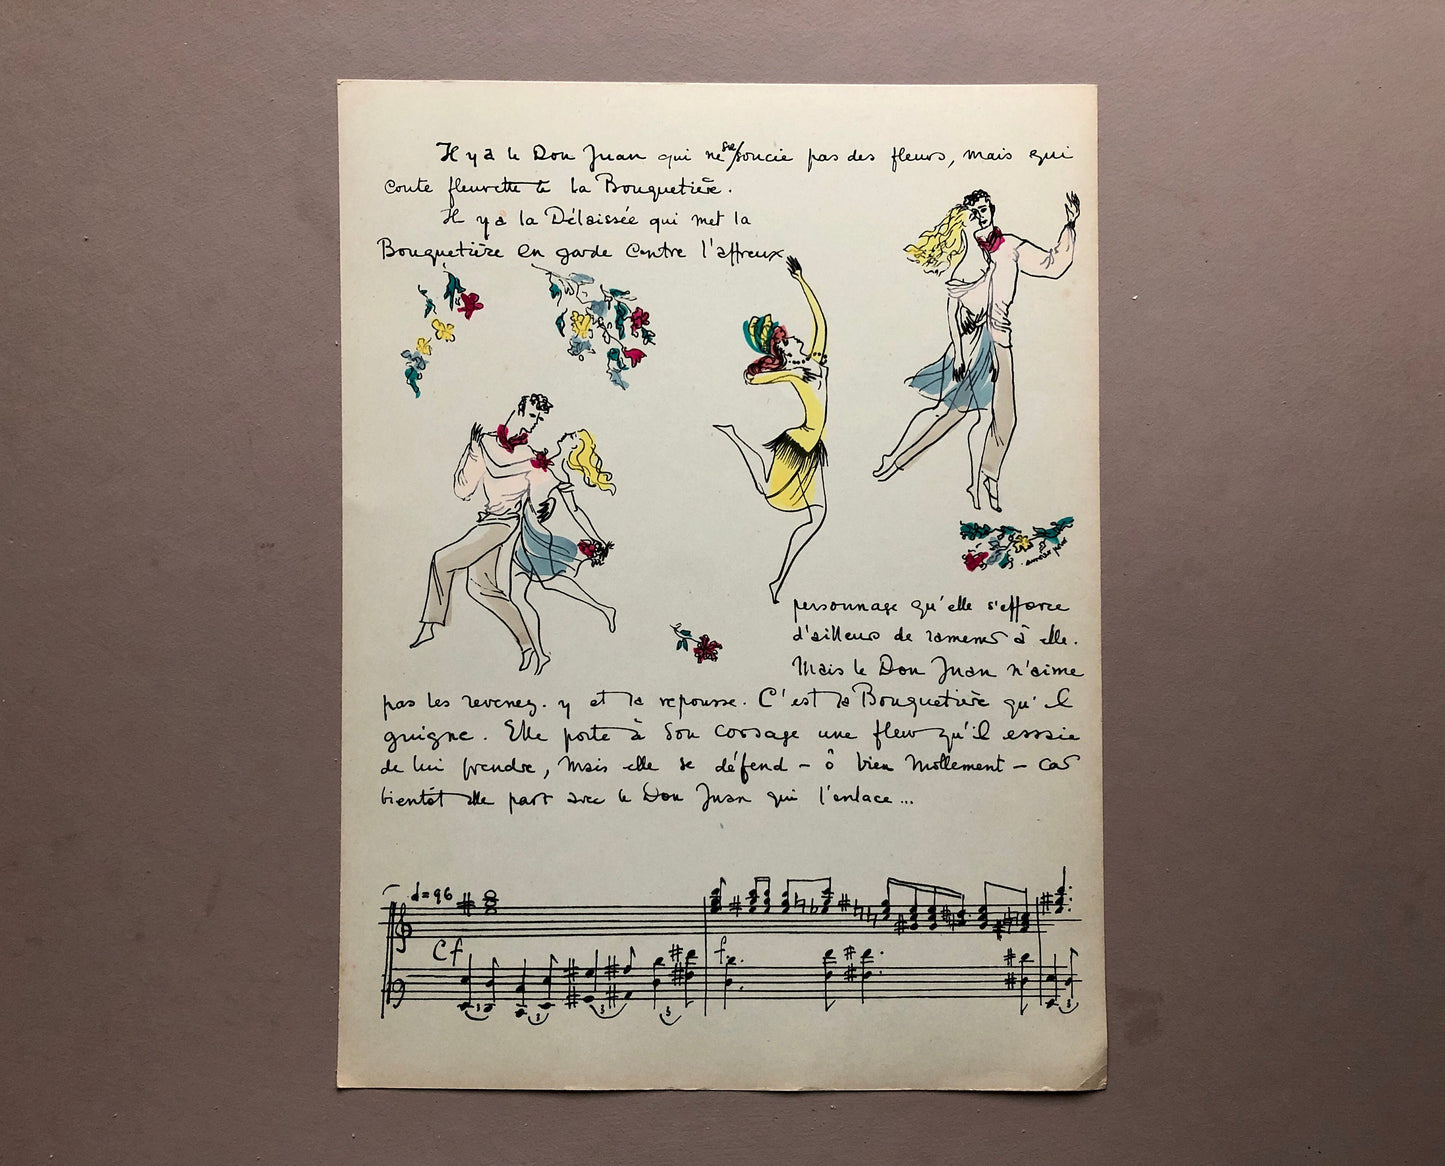 Il y a le Don Juan qui ne se soucie pas des fleurs, mais qui
conte fleurette à la Bouquetière.
Il y a la Délaissée qui met la
Bouquetière en garde contre l'affreux
personnage qu'elle s'efforce
d'ailleurs de ramener à elle.
Mais le Don Juan n'aime
pas les revenez-y et la repousse. C'est la Bouquetière qu'il
guigne. Elle porte à son corsage une fleur qu'il essaie
de lui prendre, mais elle se défend – ô bien mollement – car
bientôt elle part avec le Don Juan qui l'enlace...
d=96
C f
f
3
3
3
3
3